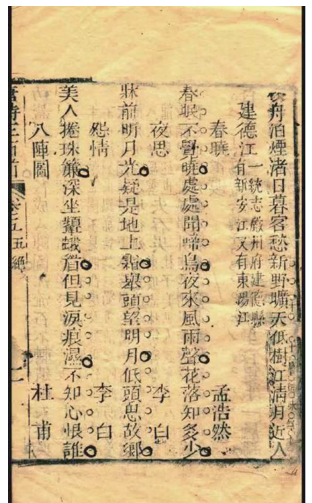 舟泊煙渚日暮客愁新野曠天低樹江清月近人
建德江 一統志嚴州府建德縣
有新安江又有東陽江
春曉 孟浩然
春眠不覺曉處處聞啼鳥夜來風雨聲花落知多少
夜思 李白
牀前明月光疑是地上霜舉頭望明月低頭思故鄉
怨情 李白
美人捲珠簾深坐顰蛾眉但見淚痕濕不知心恨誰
八陣圖 杜甫
唐詩三百首 五絕 一